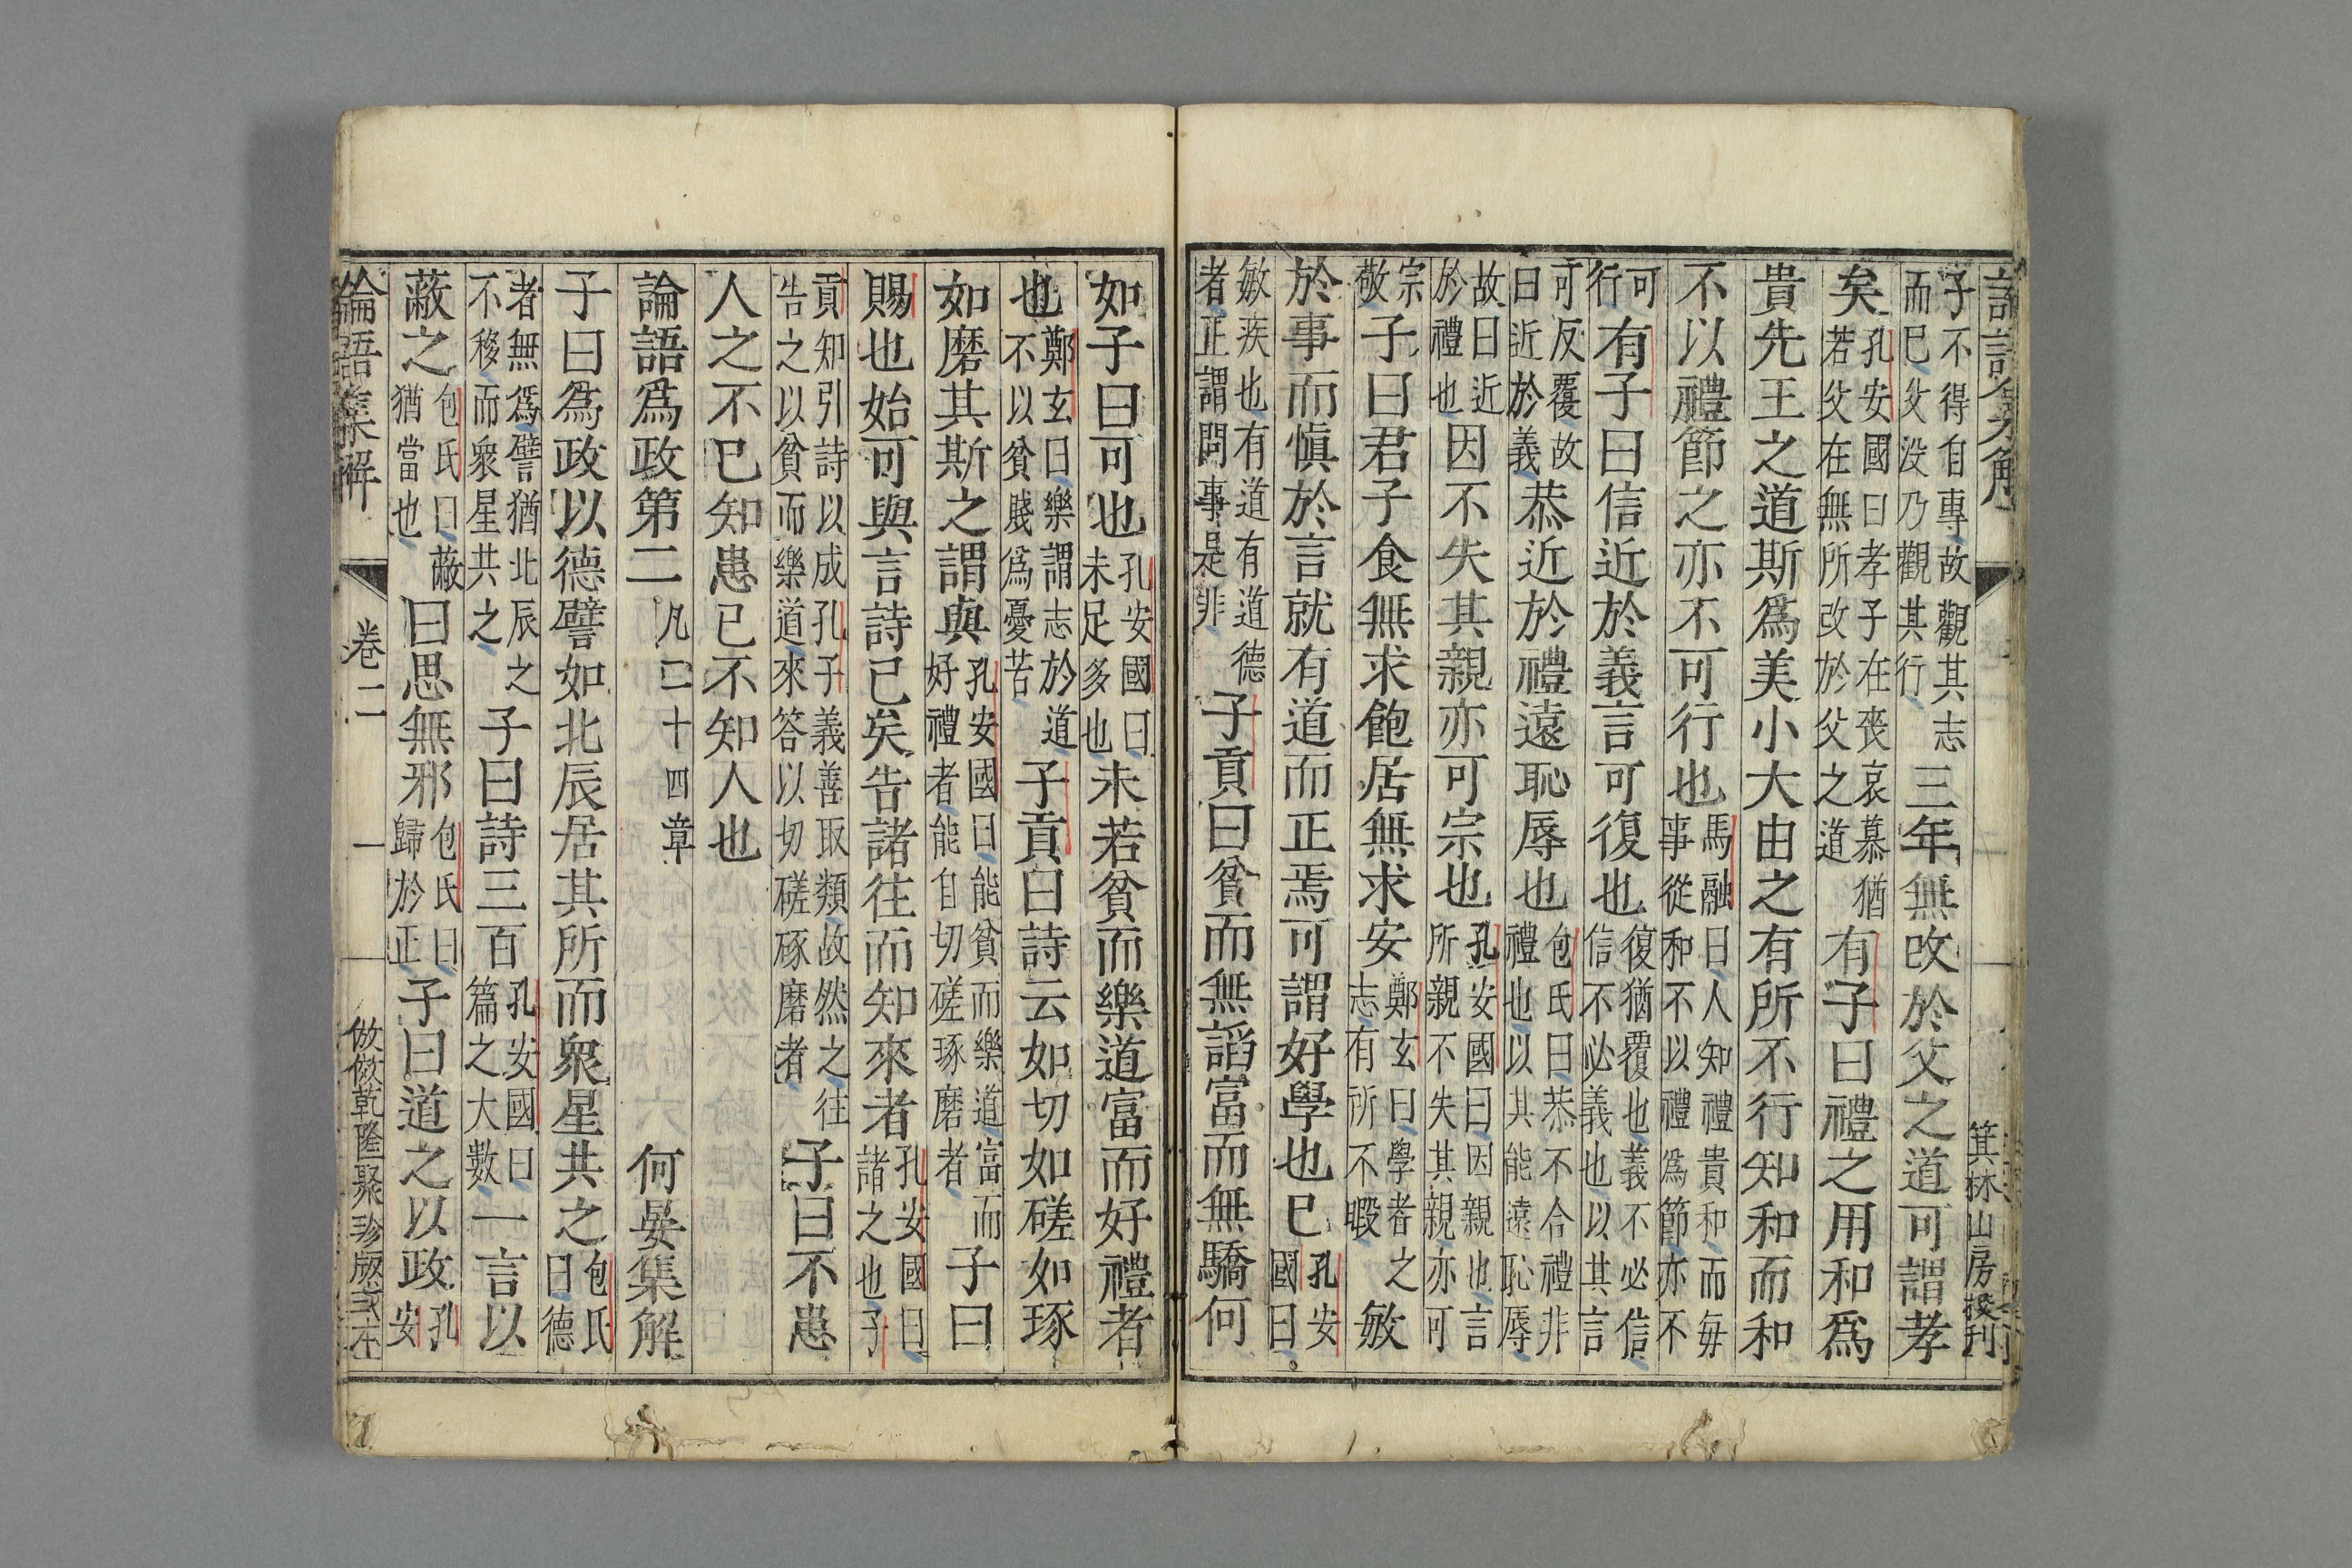 論語集解
箕林山房授刊
子不得自專故觀其志
而已父没乃觀其行
三年無改於父之道可謂孝
矣
孔安國曰孝子在喪哀慕猶
若父在無所改於父之道
有子曰禮之用和爲
貴先王之道斯爲美小大由之有所不行知和而和
不以禮節之亦不可行也
馬融曰人知禮貴和而每
事從和不以禮爲節亦不
可
行
有子曰信近於義言可復也
復猶覆也義不必信
信不必義也以其言
可反覆故
曰近於義
恭近於禮遠恥辱也
包氏曰恭不合禮非
禮也以其能遠恥辱
故曰近
於禮也
因不失其親亦可宗也
孔安國曰因親也言
所親不失其親亦可
宗
敬
子曰君子食無求飽居無求安
鄭玄曰學者之
志有所不暇
敏
於事而愼於言就有道而正焉可謂好學也已
孔安
國曰
敏疾也有道有道德
者正謂問事是非
子貢曰貧而無諂富而無驕何
如子曰可也
孔安國曰
未足多也
未若貧而樂道富而好禮者
也
鄭玄曰樂謂志於道
不以貧賤爲憂苦
子貢曰詩云如切如磋如琢
如磨其斯之謂與
孔安國曰能貧而樂道富而
好禮者能自切磋琢磨者
子曰
賜也始可與言詩已矣告諸往而知來者
孔安國曰
諸之也子
貢知引詩以成孔子義善取類故然之往
告之以貧而樂道來答以切磋琢磨者
子曰不患
人之不己知患己不知人也
論語爲政第二
凡二十四章
何晏集解
子曰爲政以德譬如北辰居其所而衆星共之
包氏
曰德
者無爲譬猶北辰之
不移而衆星共之
子曰詩三百
孔安國曰
篇之大數
一言以
蔽之
包氏曰蔽
猶當也
曰思無邪
包氏曰
歸於正
子曰道之以政
孔
安
論語集解
卷二
一
倣乾隆聚珍版式